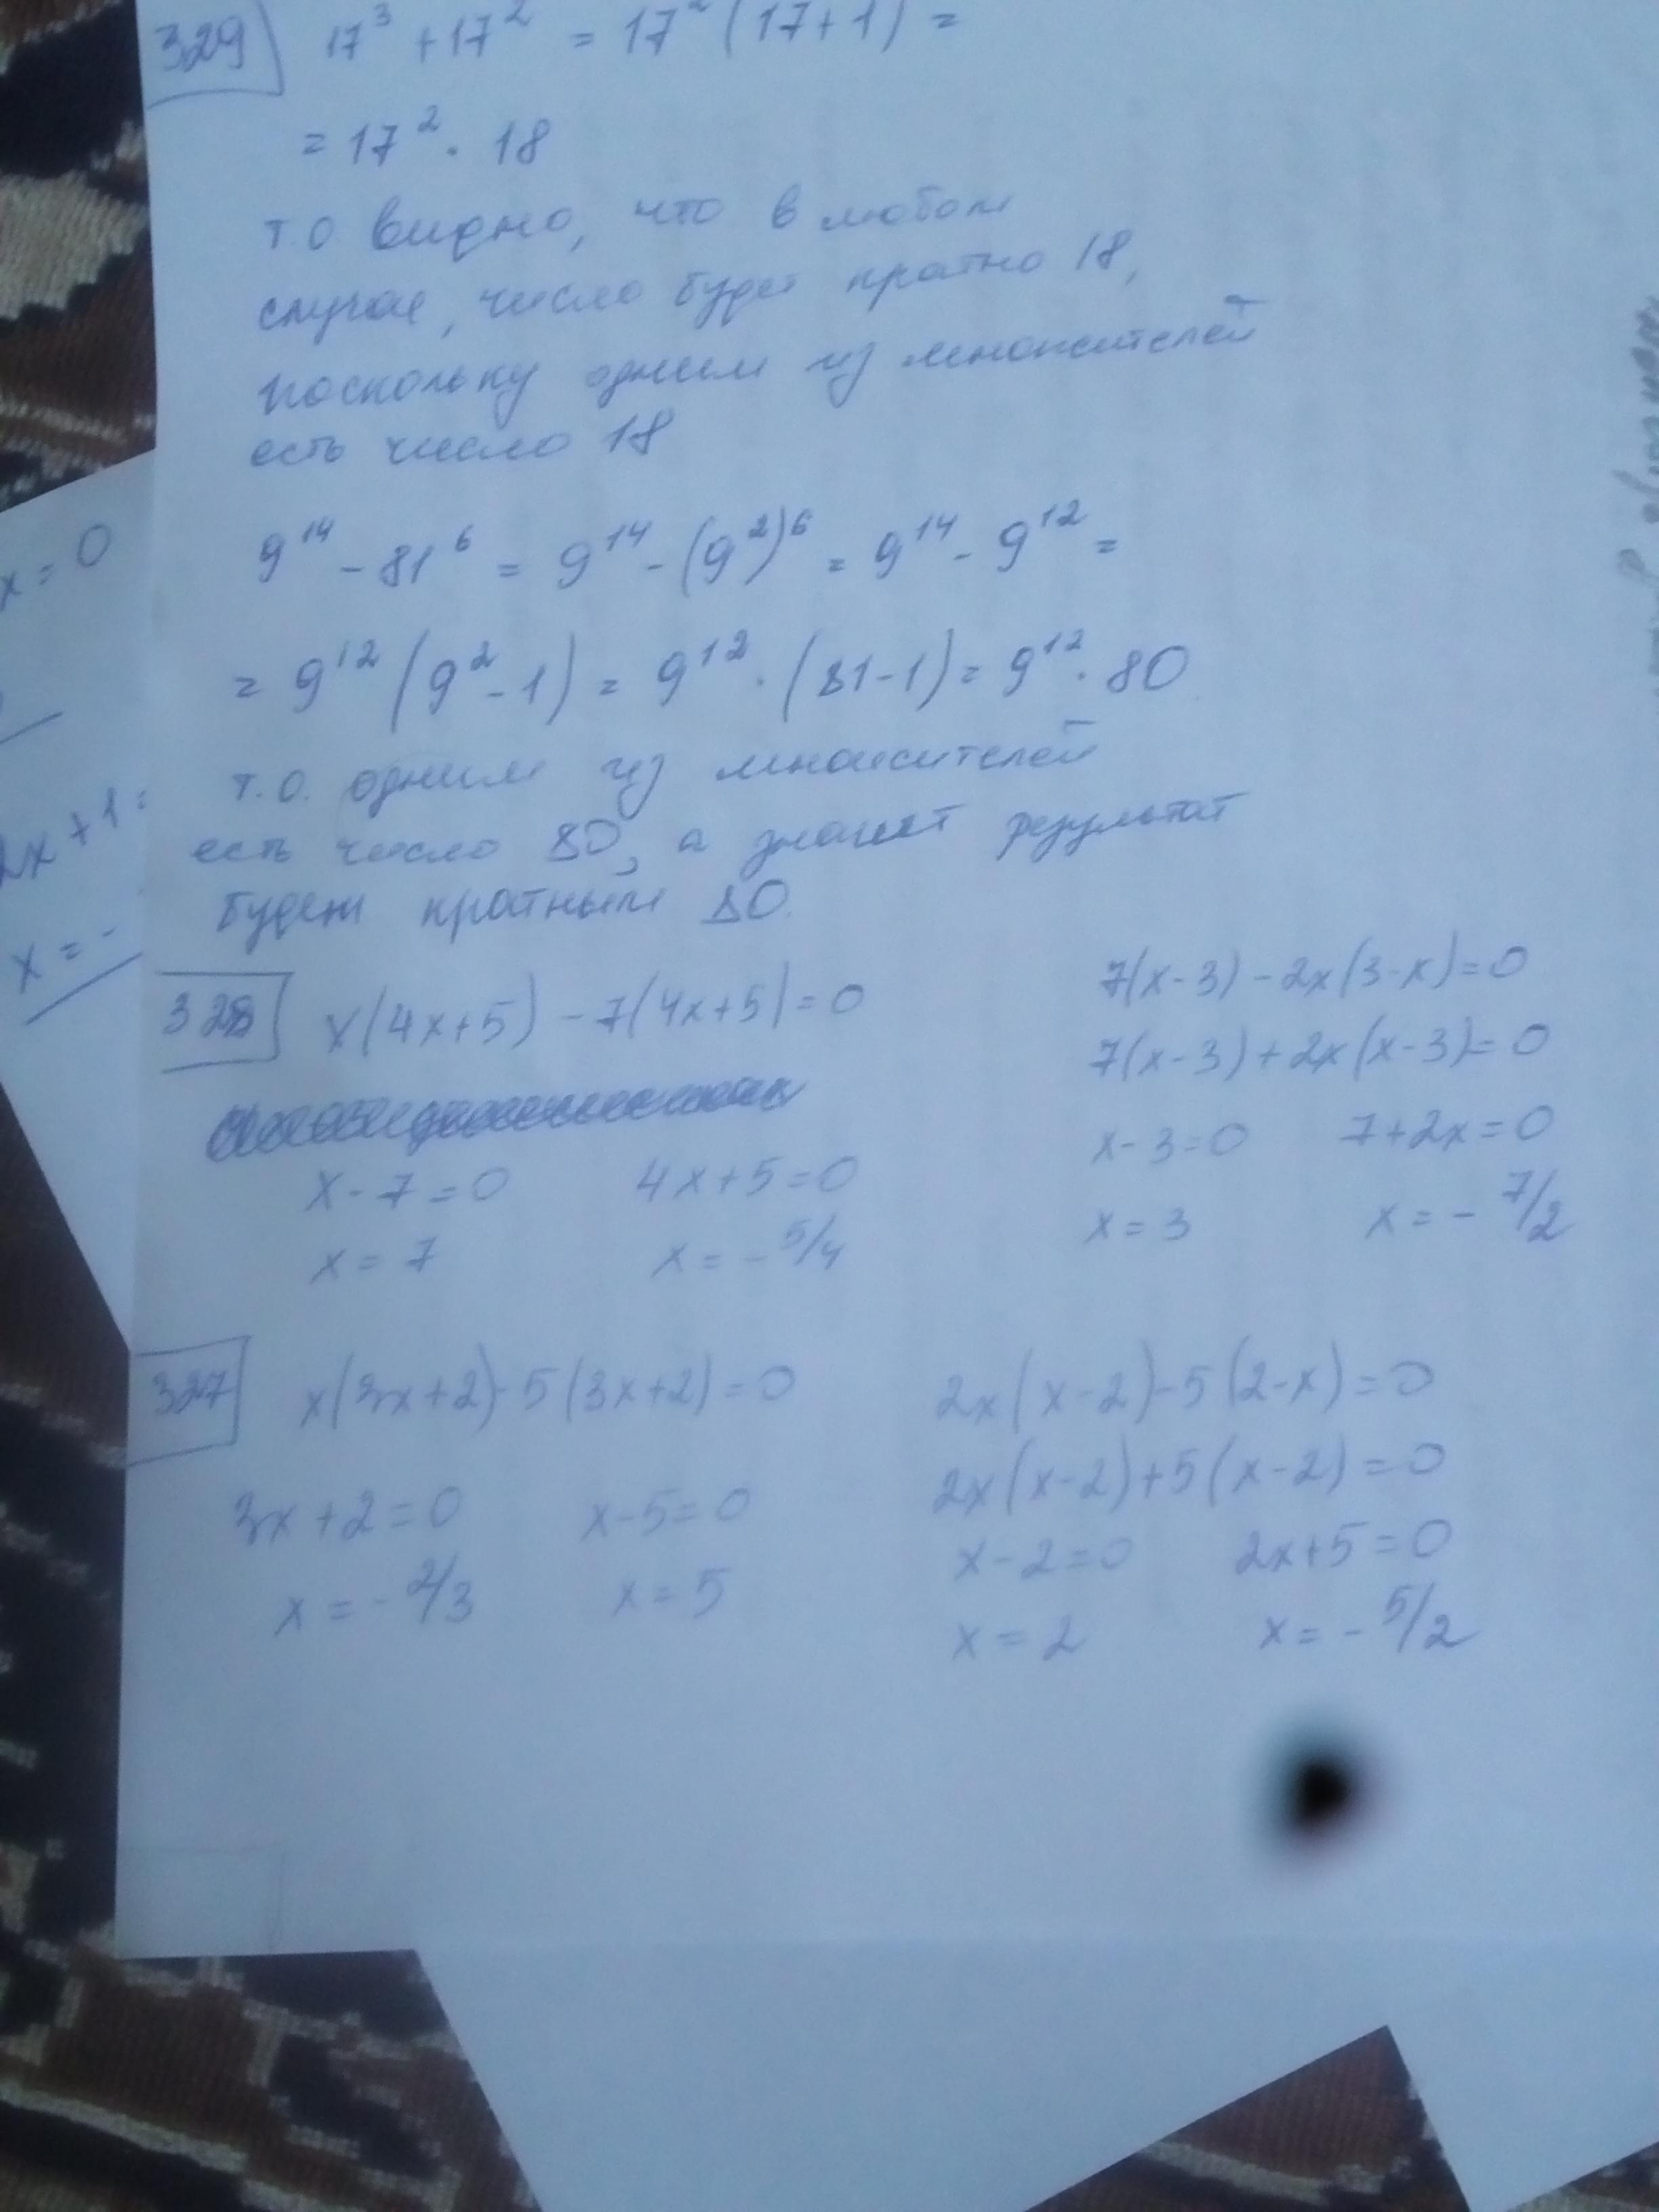 329 17³ + 17² = 17² (17+1) =
= 17² · 18
т.о видно, что в любом
случае, число будет кратно 18,
поскольку одним из множителей
есть число 18
9¹⁴ - 81⁶ = 9¹⁴ - (9²)⁶ = 9¹⁴ - 9¹² =
= 9¹² (9² - 1) = 9¹² · (81-1) = 9¹² · 80
т.о. одним из множителей
есть число 80, а значит результат
будет кратным 80.
328 x(4x+5) - 7(4x+5) = 0
x - 7 = 0 4x+5=0
x = 7 x = - 5/4
7(x-3) - 2x(3-x)=0
7(x-3)+2x(x-3)=0
x-3=0 7+2x=0
x=3 x= - 7/2
327 x(3x+2)-5(3x+2)=0
3x+2=0 x-5=0
x=-2/3 x=5
2x(x-2)-5(2-x)=0
2x(x-2)+5(x-2)=0
x-2=0 2x+5=0
x=2 x=-5/2
x=0
2x+1=
x=-